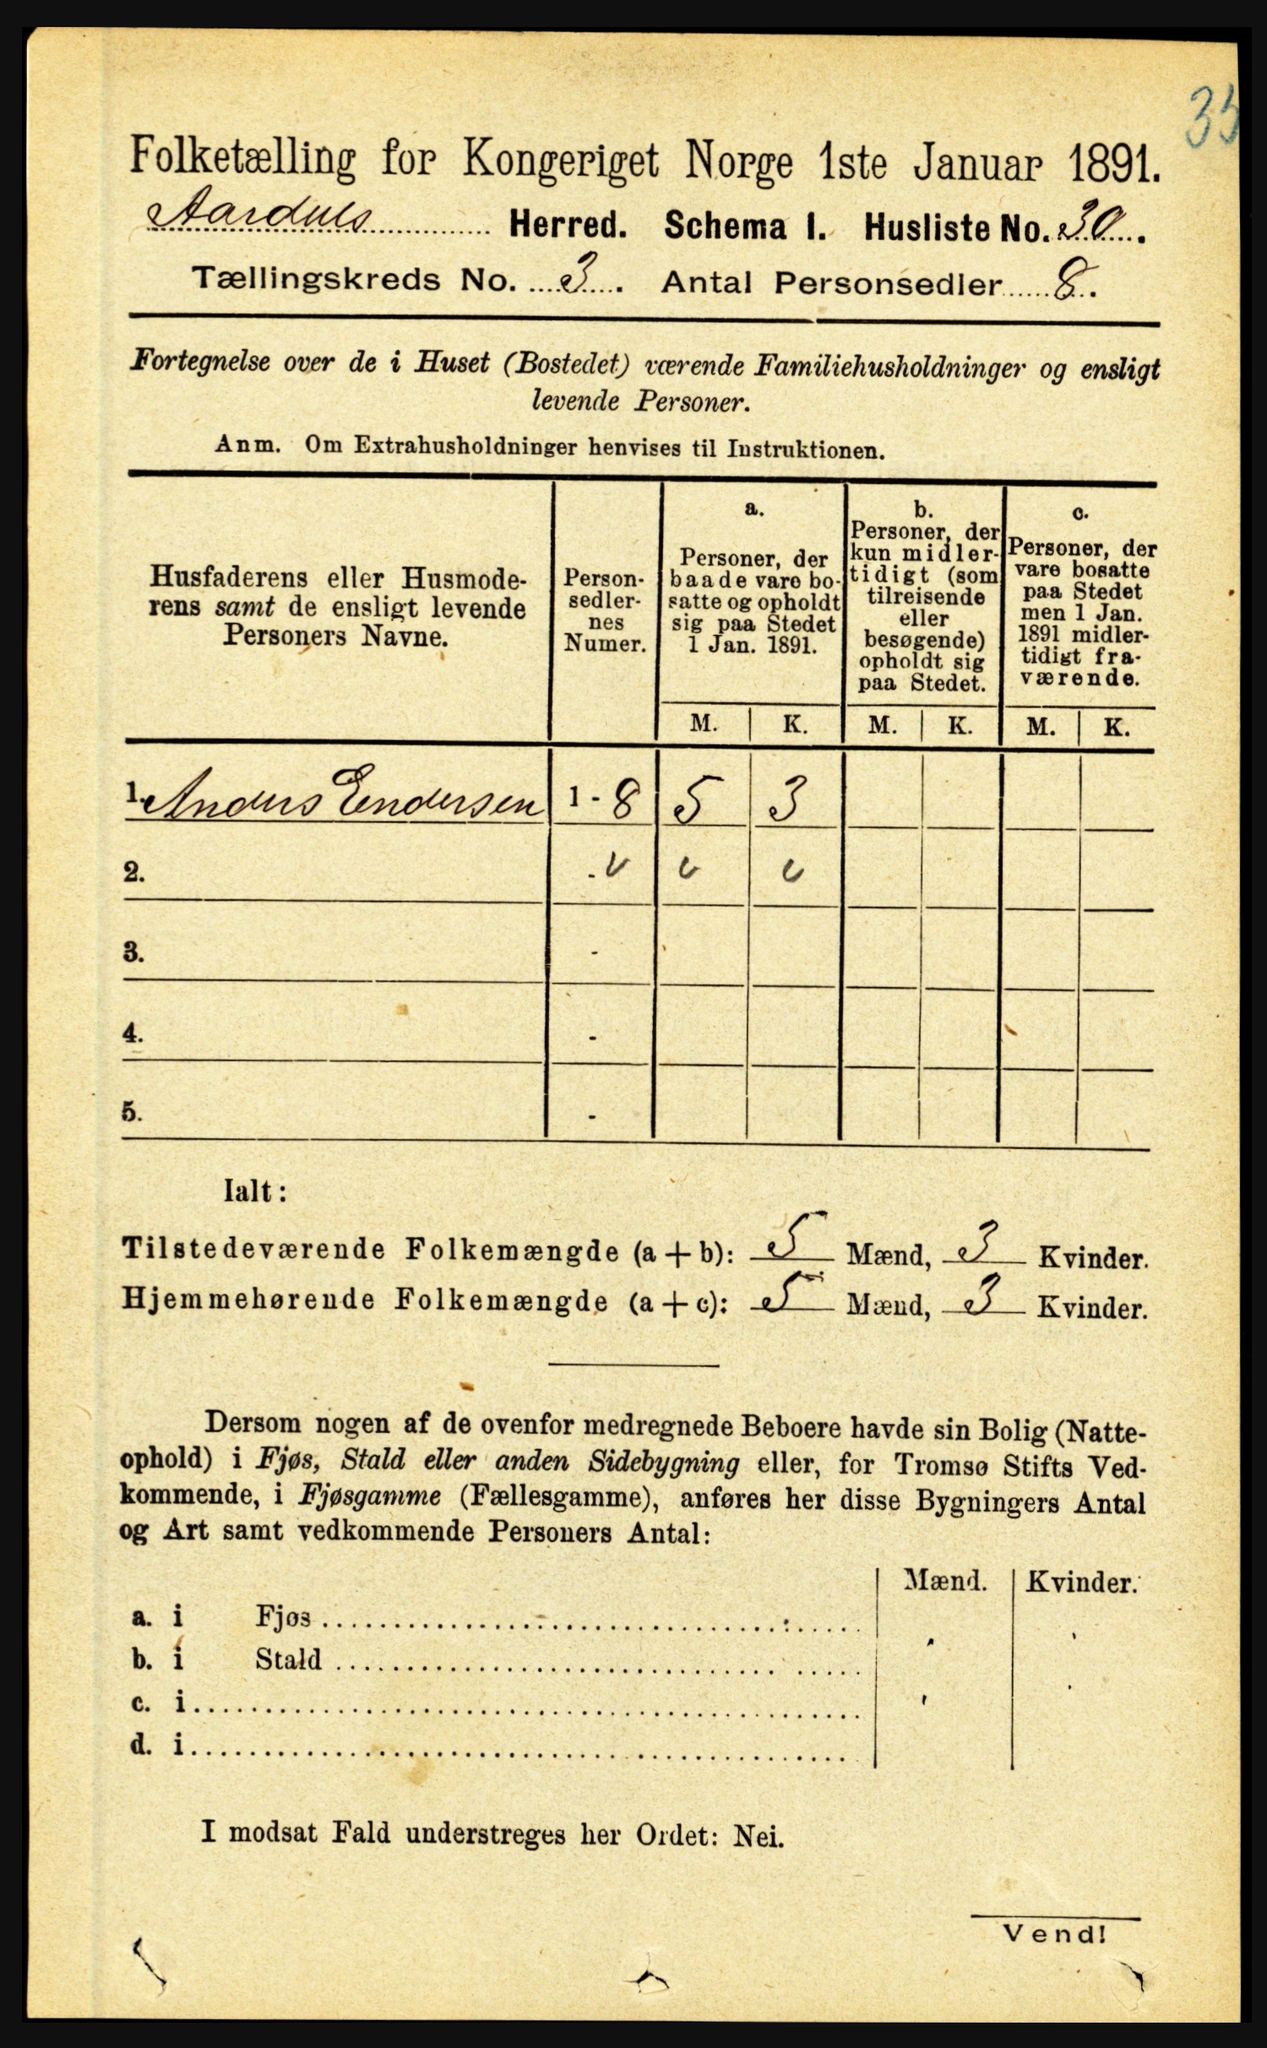 Folketælling for Kongeriget Norge 1ste Januar 1891.
Aardals Herred. Schema I. Husliste No. 30.
Tællingskreds No. 3. Antal Personsedler 8.
Fortegnelse over de i Huset (Bostedet) værende Familiehusholdninger og ensligt
levende Personer.
Anm. Om Extrahusholdninger henvises til Instruktionen.
Husfaderens eller Husmode-
rens samt de ensligt levende
Personers Navne.
Person-
sedler-
nes
Numer.
a.
Personer, der
baade vare bo-
satte og opholdt
sig paa Stedet
1 Jan. 1891.
b.
Personer, der
kun midler-
tidigt (som
tilreisende
eller
besøgende)
opholdt sig
paa Stedet.
c.
Personer, der
vare bosatte
paa Stedet
men 1 Jan.
1891 midler-
tidigt fra-
værende.
M. K. M. K. M. K.
1. Anders Endersen 1 - 8 5 3
2. -
3. -
4. -
5. -
Ialt:
Tilstedeværende Folkemængde (a + b): 5 Mænd, 3 Kvinder.
Hjemmehørende Folkemængde (a + c): 5 Mænd, 3 Kvinder.
Dersom nogen af de ovenfor medregnede Beboere havde sin Bolig (Natte-
ophold) i Fjøs, Stald eller anden Sidebygning eller, for Tromsø Stifts Ved-
kommende, i Fjøsgamme (Fællesgamme), anføres her disse Bygningers Antal
og Art samt vedkommende Personers Antal:
Mænd. Kvinder.
a. i Fjøs
b. i Stald
c. i
d. i
I modsat Fald understreges her Ordet: Nei.
Vend!